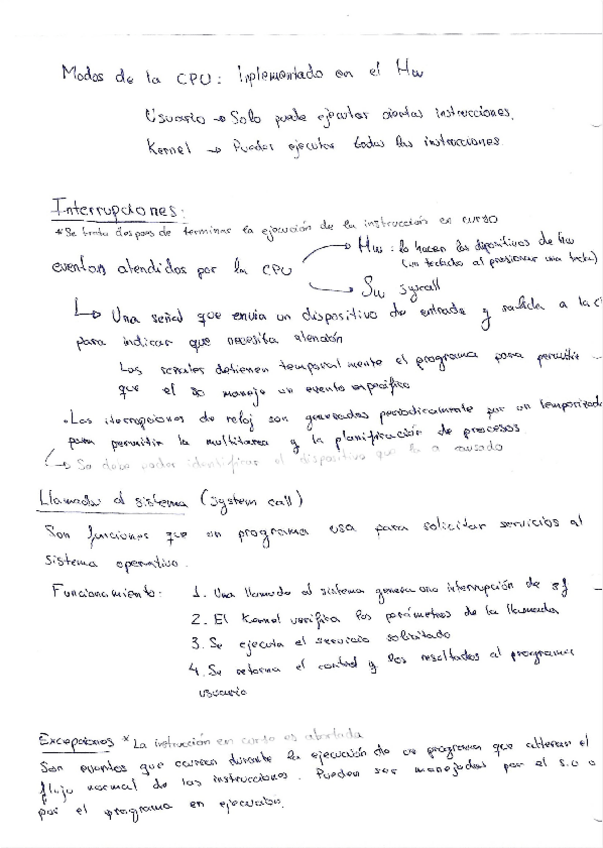 Modos de la CPU: Inplementado en el Hw
Usuario → Solo puede ejecutar ciertas instrucciones.
Kernel → Puedes ejecutar todas las instrucciones
Interrupciones:
*Se trata despues de terminar la ejecución de la instrucción en curso
eventos atendidos por la CPU
Hw: lo hacen los dispositivos de Hw
(un teclado al presionar una tecla)
Sw syscall
↳ Una señal que envia un dispositivo de entrada y salida a la C
para indicar que necesita atención
Las señales detienen temporalmente el programa para permitir
que el so maneje un evento especifico
•Las iterrupciones de reloj son generadas periodicamente por un temporizado
para permitir la multitarea y la planificación de procesos
↳ Se debe poder identificar el dispositivo que la a causado
Llamada al sistema (system call)
Son funciones que un programa usa para solicitar servicios al
sistema operativo.
Funcionamiento: 1. Una llamada al sistema genera una interrupción de
2. El Kernel verifica los parámetros de la llamada
3. Se ejecuta el servicio solicitado
4. Se retorna el control y los resultados al programa
usuario
Excepciones * La instrucción en curso es abortada
Son eventos que ocurren durante la ejecución de un programa que alteran el
flujo normal de las instrucciones. Pueden ser manejadas por el S.O o
por el programa en ejecución.